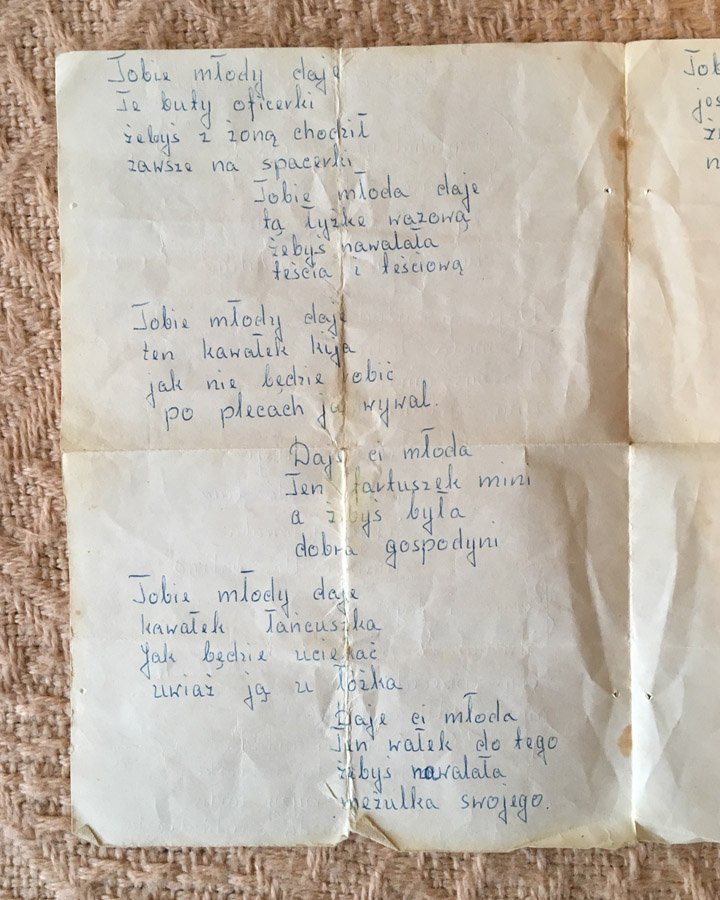 Tobie młody daje
Te buty oficerki
żebyś z żoną chodził
zawsze na spacerki
Tobie młoda daje
tą łyżkę wazową
żebyś nawalała
teścia i teściową
Tobie młody daje
ten kawałek kija
jak nie będzie obić
po plecach ją wywal.
Daje ci młoda
Ten fartuszek mini
a żebyś była
dobra gospodyni
Tobie młody daje
kawałek łańcuszka
Jak będzie uciekać
uwiąż ją u łóżka
Daje ci młoda
Ten wałek do tego
żebyś nawalała
mężulka swojego.
Tob
jes
n